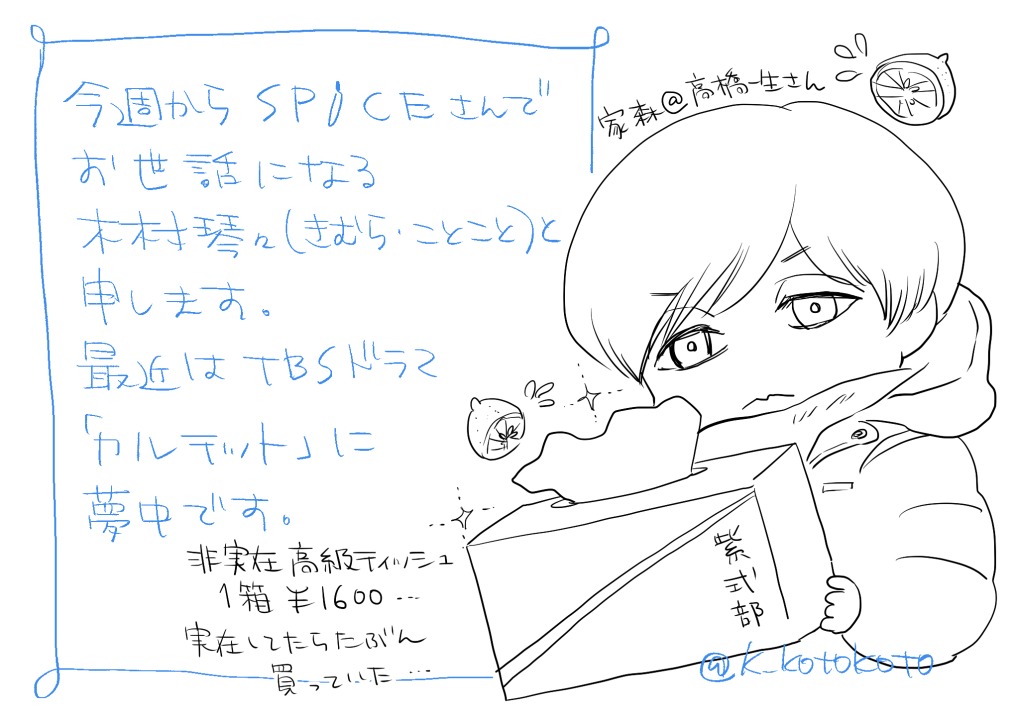 今週からSPICEさんで
お世話になる
木村琴々(きむら・ことこと)と
申します。
最近はTBSドラマ
「カルテット」に
夢中です。
家森@高橋一生さん
非実在高級ティッシュ
1箱¥1600…
実在してたらたぶん
買っていた…
紫式部
@k_kotokoto